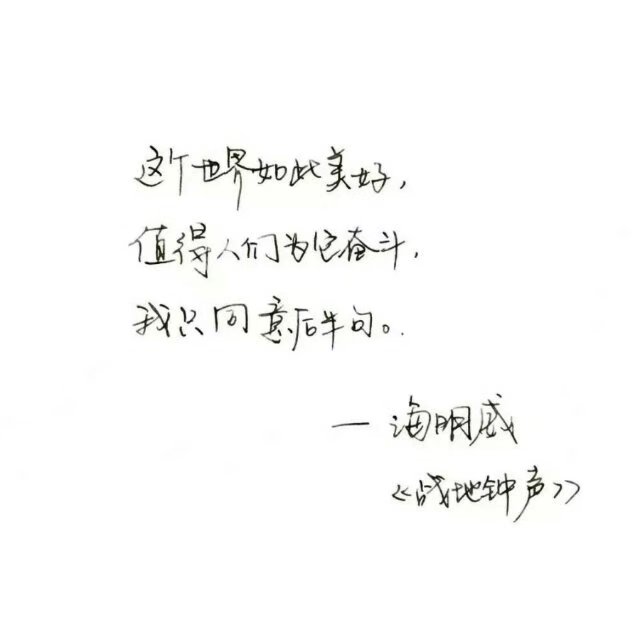 这个世界如此美好，
值得人们为它奋斗，
我只同意后半句。
— 海明威
《战地钟声》